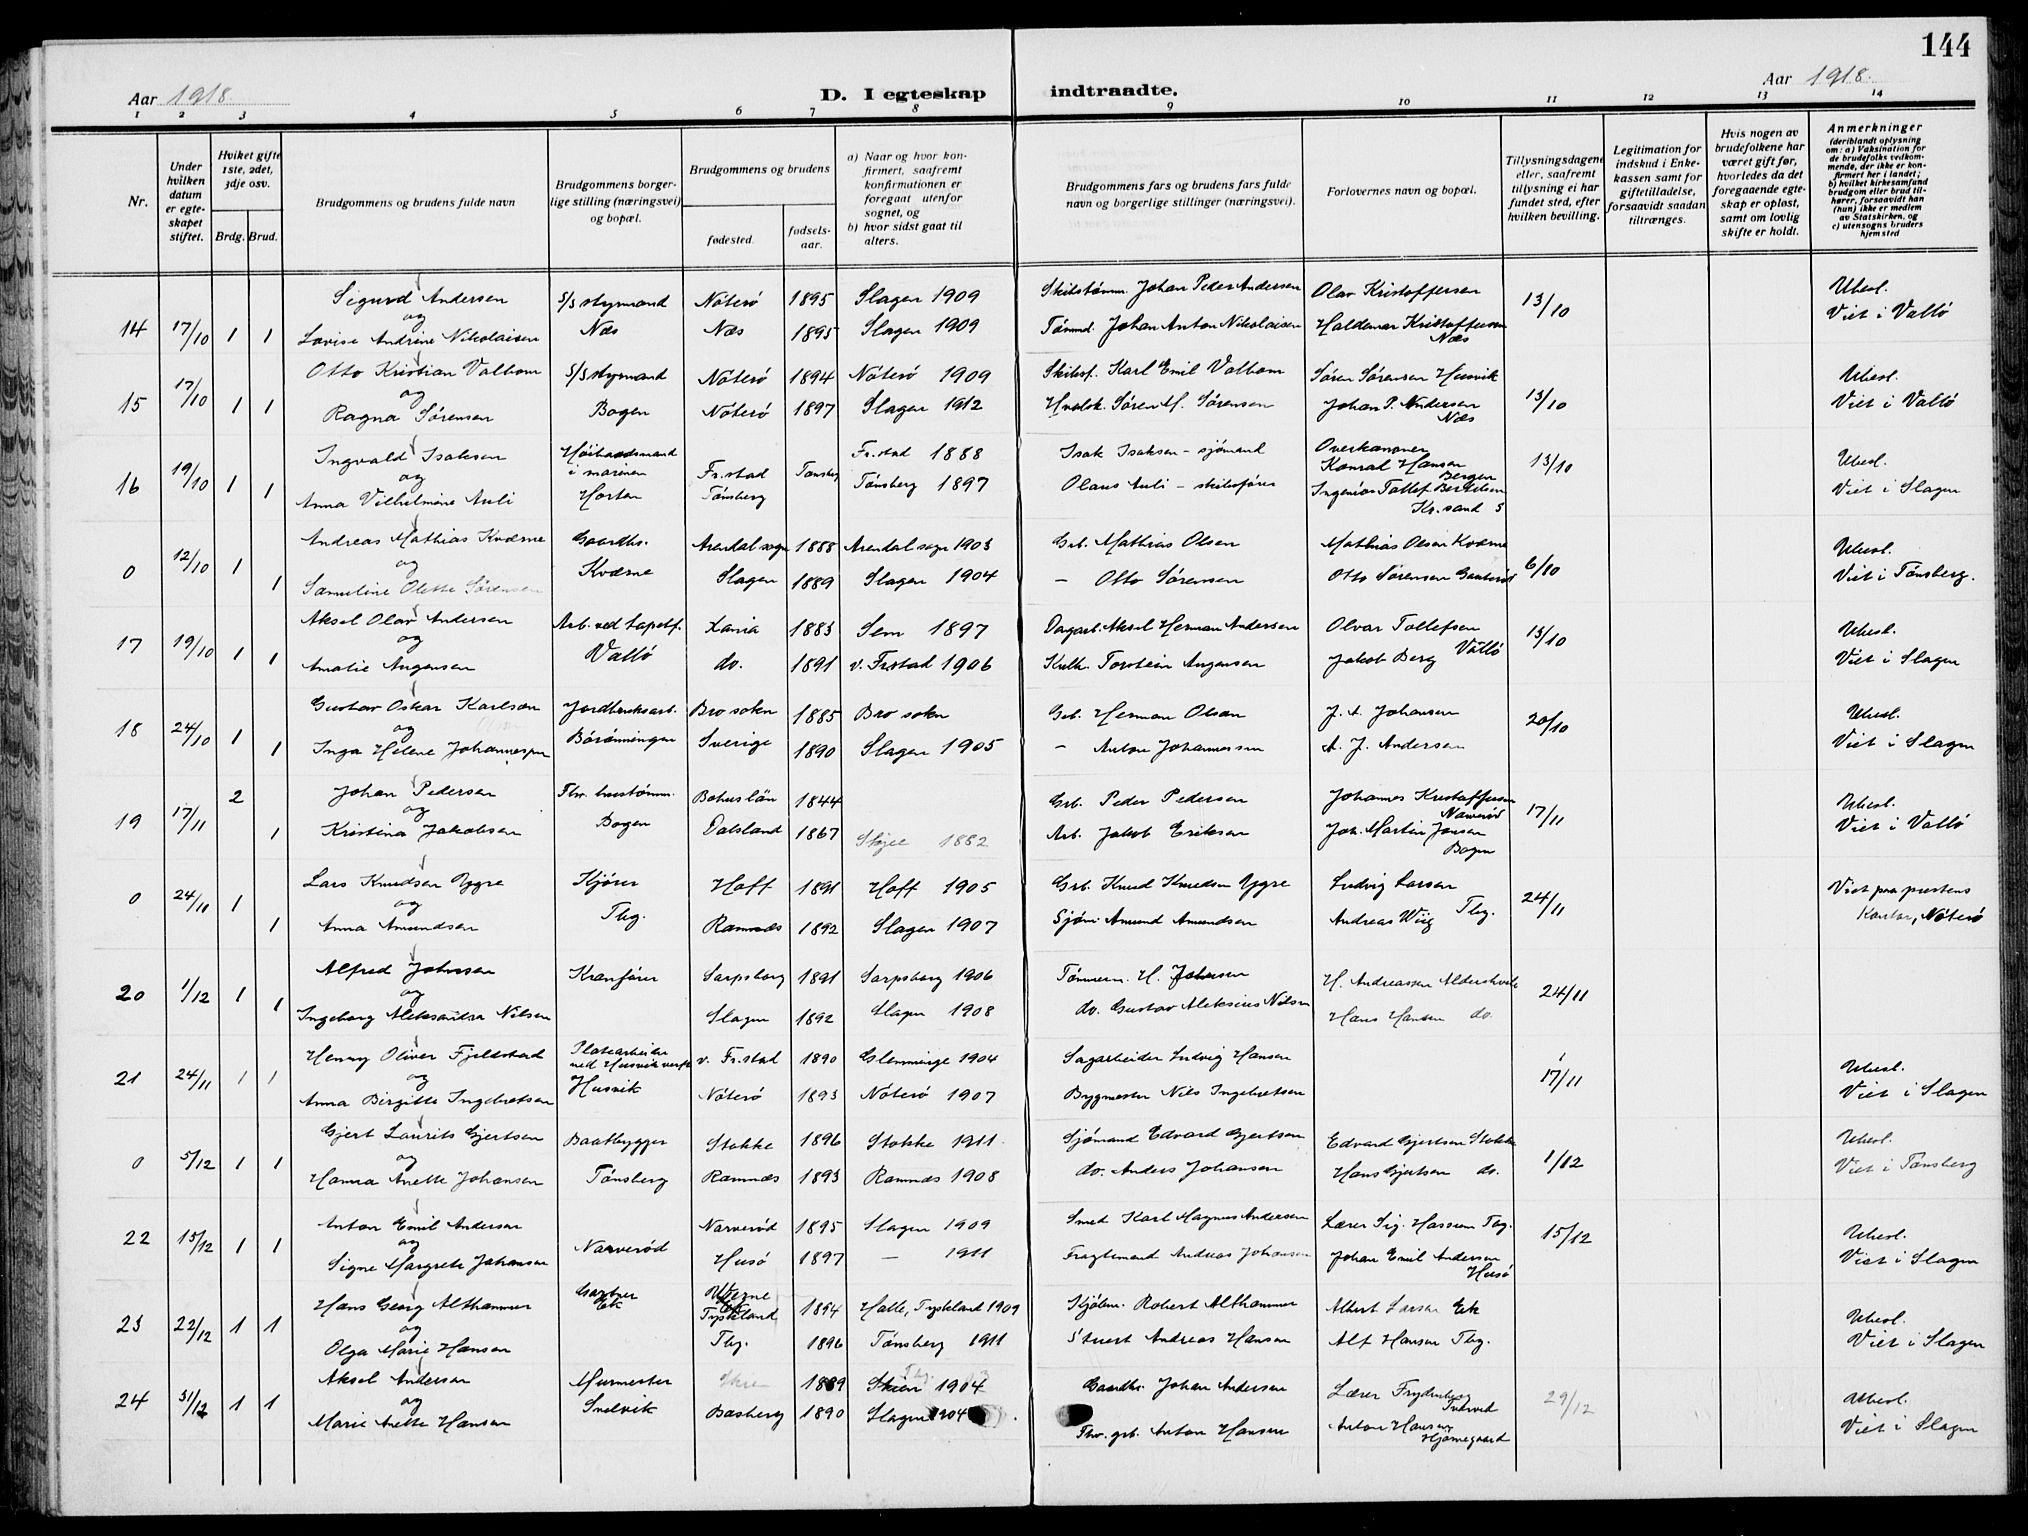 144
Aar 1918. D. I egteskap indtraadte. Aar 1918.
1 2 3 4 5 6 7 8 9 10 11 12 13 14
Nr.
Under hvilken datum er egteskapet stiftet.
Hviket gifte 1ste, 2det, 3dje osv.
Brdg. Brud.
Brudgommens og brudens fulde navn
Brudgommens borgerlige stilling (næringsvei) og bopæl.
Brudgommens og brudens
fødested. fødselsaar.
a) Naar og hvor konfirmert, saafremt konfirmationen er foregaat utenfor sognet, og
b) hvor sidst gaat til alters.
Brudgommens fars og brudens fars fulde navn og borgerlige stillinger (næringsvei).
Forlovernes navn og bopæl.
Tillysningsdagene eller, saafremt tillysning ei har fundet sted, efter hvilken bevilling.
Legitimation for indskud i Enkekassen samt for giftetilladelse, forsaavidt saadan tiltrænges.
Hvis nogen av brudefolkene har været gift før, hvorledes da det foregaaende egteskap er opløst, samt om lovlig skifte er holdt.
Anmerkninger (deriblandt oplysning om: a) Vaksination for de brudefolks vedkommende, der ikke er konfirmert her i landet; b) hvilket kirkesamfund brudgom eller brud tilhører, forsaavidt han (hun) ikke er medlem av Statskirken, og c) utensogns bruders hjemsted
Sigurd Andersen S/S styrmand Nøterø 1895 Slagen 1909 Johan Peder Andersen Olav Kristoffersen 13/10 Ubesl.
14 17/10 1 1 og
Lovise Andrine Nikolaisen Næs Næs 1895 Slagen 1909 Tømmd. Johan Anton Nikolaisen Haldemar Kristoffersen Næs Viet i Vallø
Otto Kristian Valbom S/S styrmand Nøterø 1894 Nøterø 1909 Skibsf. Karl Emil Valbom Søren Sørensen Husvik Ubesl.
15 17/10 1 1 og 13/10
Ragna Sørensen Bogen Nøterø 1897 Slagen 1912 Hvalsk. Søren M. Sørensen Johan P. Andersen Næs Viet i Vallø
Ingvald Isaksen Høibaadsmand i marinen Fr.stad Fr.stad 1888 Isak Isaksen - sjømand Overkanoner Konrad Hansen Bergen 13/10 Ubesl.
16 19/10 1 1 og Tønsberg
Anna Vilhelmine Auli Horten Tønsberg Tønsberg 1897 Olaus Auli - skibsfører Ingeniør Tollef Bertelsen Kr.sand S Viet i Slagen
Andreas Mathias Kværne Gaardbr. Arendal sogn 1888 Arendal sogn 1903 Grb. Mathias Olsen Mathias Olsen Kværne 6/10 Ubesl.
0 12/10 1 1 og
Samuline Olette Sørensen Kværne Slagen 1889 Slagen 1904 - Otto Sørensen Otto Sørensen Viet i Tønsberg.
Aksel Olav Andersen Arb. ved tapetf. Xania 1883 Sem 1897 Dagarb. Aksel Herman Andersen Olvar Tollefsen 13/10 Ubesl.
17 19/10 1 1 og
Amalie Angensen Vallø do. 1891 v. Fr.stad 1906 Torstein Angensen Jakob Berg Vallø Viet i Slagen
Gustav Oskar Karlsen Jordbruksarb. Bro sokn 1885 Bro sokn Grb. Herman Olsen J. A. Johansen 20/10 Ubesl.
18 24/10 1 1 og
Inga Helene Johannessen Børønningen Sverige 1890 Slagen 1905 - Anton Johannessen A. J. Andersen Viet i Slagen
Johan Pedersen Bohuslän 1844 Grb. Peder Pedersen Johannes Kristoffersen Narverød 17/11 Ubesl.
19 17/11 2 1 og
Kristina Jakobsen Bogen Dalsland 1867 Skjee 1882 Arb. Jakob Eriksen Joh. Martin Jansen Bogen Viet i Vallø
Lars Knudsen Bygre Kjører Hoff 1891 Hoff 1905 Grb. Knud Knudsen Bygre Ludvig Larsen 24/11 Viet paa prestens
0 24/11 1 1 og
Anna Amundsen Tbg. Ramnæs 1892 Slagen 1907 Sjøm. Amund Amundsen Andreas Wiig Tbg. Kontor, Nøterø
Alfred Johnsen Kranfører Sarpsborg 1891 Sarpsborg 1906 Tømmerm. H. Johnsen H. Andreassen Aldershvile
20 1/12 1 1 og 24/11
Ingeborg Aleksandra Nilsen Slagen 1892 Slagen 1908 do. Gustav Aleksius Nilsen Hans Hansen do.
Henny Oliver Fjeldstad Platearbeider ved Husvik verft v. Fr.stad 1890 Glemminge 1904 Sagarbeider Ludvig Hansen Ubesl.
21 24/11 1 1 og 17/11
Anna Birgitte Ingebretsen Husvik Nøterø 1893 Nøterø 1907 Bygmester Nils Ingebretsen Viet i Slagen
Gjert Laurits Gjertsen Baatbygger Stokke 1896 Stokke 1911. Sjømand Edvard Gjertsen Edvard Gjertsen Stokke Ubesl.
0 5/12 1 1 og 1/12
Hanna Anette Johansen Tønsberg Ramnæs 1893 Ramnæs 1908 do. Anders Johansen Hans Gjertsen do. Viet i Tønsberg
Anton Emil Andersen Narverød 1895 Slagen 1909 Smed Karl Magnus Andersen Lærer Sig. Hassum Tbg. 15/12 Ubesl.
22 15/12 1 1 og Narverød
Signe Margrete Johansen Husø 1897 - 1911 Fragtemand Andreas Johansen Johan Emil Andersen Husø Viet i Slagen
Hans Georg Althammer Gartner Ek Tyskland 1894 Halle, Tyskland 1909 Kjøbm. Robert Althammer Albert Larsen Ek Ubesl.
23 22/12 1 1 og
Olga Marie Hansen Tbg. 1896 Tønsberg 1911 Stuert Andreas Hansen Alf Hansen Tbg. Viet i Slagen
Aksel Andersen Murmester 1889 Skien 1904 Gaardbr. Johan Andersen Lærer 29/12 Ubesl.
24 31/12 1 1 og
Marie Anette Hansen Svelvik Basberg 1890 Slagen 1904 Fhv. grb. Anton Hansen Anton Hansen Hjørnegaard Viet i Slagen